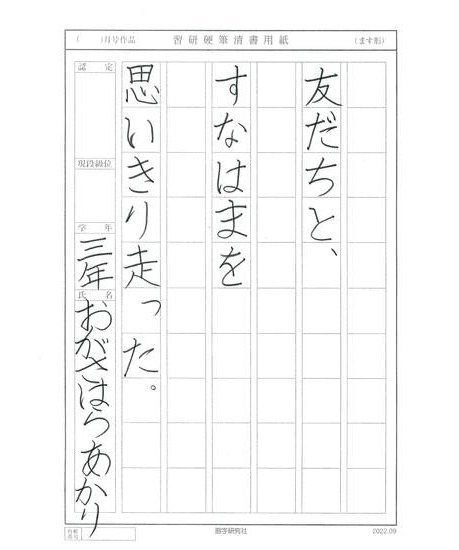 ( )月号作品 習研硬筆清書用紙 (ます形)
友だちと、
すなはまを
思いきり走った。
認定
現段級位
学年
三年
氏名
おがさはらあかり
2022.09